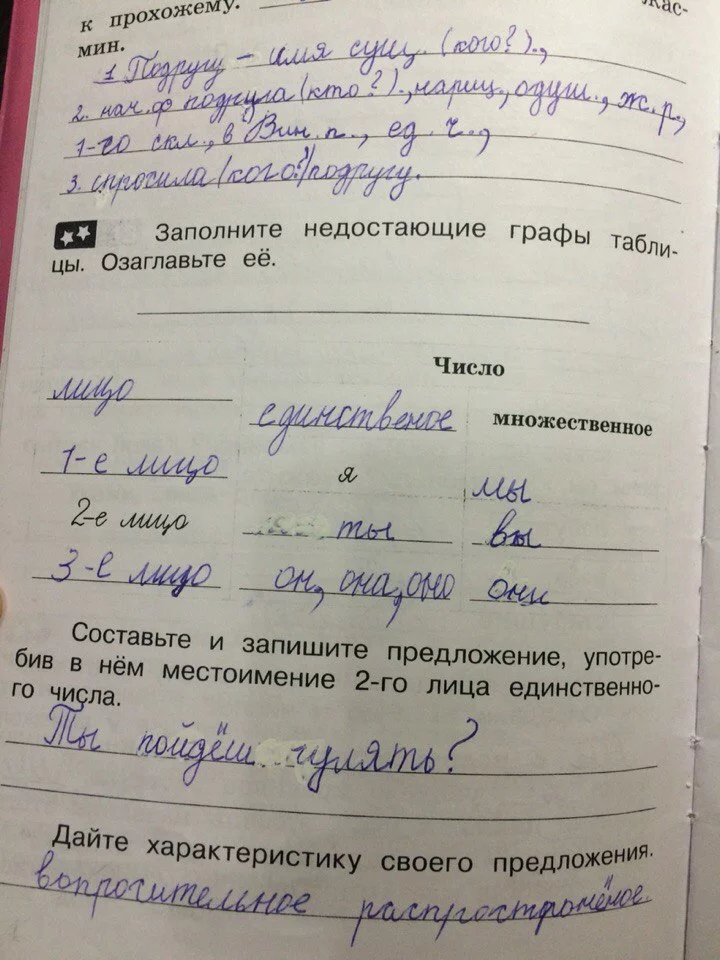 к прохожему.
жас-
мин.
1 Подругу – имя сущ. (кого?).,
2. нач. ф подруга (кто?)., нариц., одуш., ж.р.,
1-го скл., в Вин. п., ед. ч.,
3. спросила (кого?) подругу.
Заполните недостающие графы табли-
цы. Озаглавьте её.
Число
лицо
единственое множественное
1-е лицо я мы
2-е лицо ты вы
3-е лицо он, она, оно они
Составьте и запишите предложение, употре-
бив в нём местоимение 2-го лица единственно-
го числа.
Ты пойдёш гулять?
Дайте характеристику своего предложения.
вопросительное распространёное.